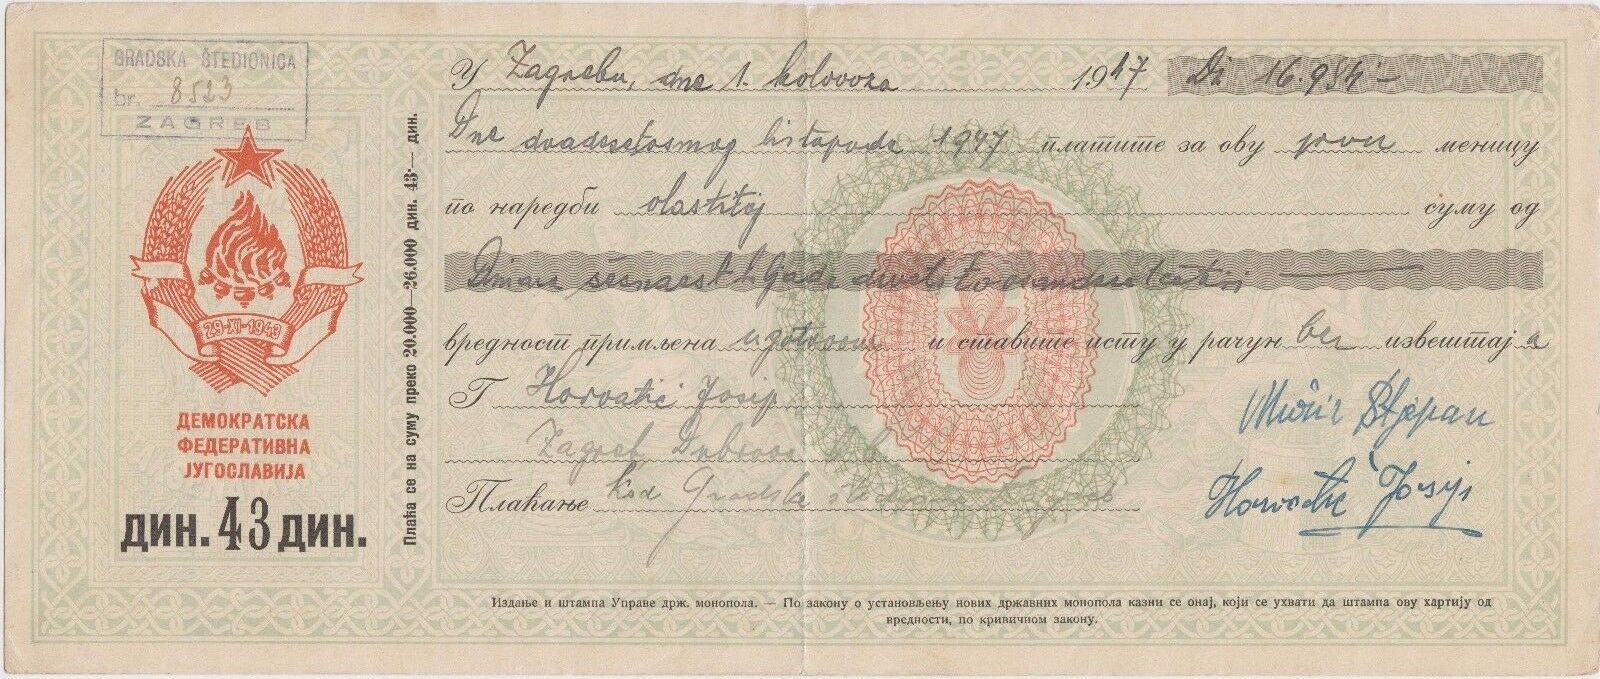 GRADSKA ŠTEDIONICA
br. 8523
ZAGREB
29-XI-1943
ДЕМОКРАТСКА
ФЕДЕРАТИВНА
ЈУГОСЛАВИЈА
ДИН. 43 ДИН.
Плаћа се на суму преко 20.000—26.000 дин. 43·— дин.
У Zagrebu, dne 1. kolovoza 1947 Di 16.984·–
Dne dvadesetosmog listopada 1947 платите за ову prvu меницу
по наредби vlastitoj суму од
Dinara šesnaest hiljada
вредност примљена u gotovom и ставите исту у рачун bez извештај а
Г Horvatić Josip
Zagreb
Плаћање kod Gradska
Stjepan
Horvatić Josip
Издање и штампа Управе држ. монопола. — По закону о установљењу нових државних монопола казни се онај, који се ухвати да штампа ову хартију од
вредности, по кривичном закону.